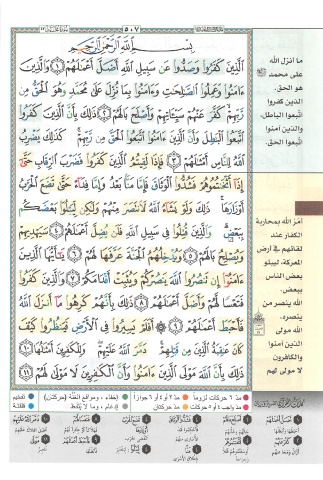 ٥٠٧
بِسْمِ اللَّهِ الرَّحْمَٰنِ الرَّحِيمِ
الَّذِينَ كَفَرُوا وَصَدُّوا عَن سَبِيلِ اللَّهِ أَضَلَّ أَعْمَالَهُمْ ١ وَالَّذِينَ
ءَامَنُوا وَعَمِلُوا الصَّالِحَاتِ وَءَامَنُوا بِمَا نُزِّلَ عَلَىٰ مُحَمَّدٍ وَهُوَ الْحَقُّ مِن
رَّبِّهِمْ كَفَّرَ عَنْهُمْ سَيِّئَاتِهِمْ وَأَصْلَحَ بَالَهُمْ ٢ ذَٰلِكَ بِأَنَّ الَّذِينَ كَفَرُوا
اتَّبَعُوا الْبَاطِلَ وَأَنَّ الَّذِينَ ءَامَنُوا اتَّبَعُوا الْحَقَّ مِن رَّبِّهِمْ كَذَٰلِكَ يَضْرِبُ
اللَّهُ لِلنَّاسِ أَمْثَالَهُمْ ٣ فَإِذَا لَقِيتُمُ الَّذِينَ كَفَرُوا فَضَرْبَ الرِّقَابِ حَتَّىٰ
إِذَا أَثْخَنتُمُوهُمْ فَشُدُّوا الْوَثَاقَ فَإِمَّا مَنًّا بَعْدُ وَإِمَّا فِدَاءً حَتَّىٰ تَضَعَ الْحَرْبُ
أَوْزَارَهَا ذَٰلِكَ وَلَوْ يَشَاءُ اللَّهُ لَانتَصَرَ مِنْهُمْ وَلَٰكِن لِّيَبْلُوَا بَعْضَكُم
بِبَعْضٍ وَالَّذِينَ قُتِلُوا فِي سَبِيلِ اللَّهِ فَلَن يُضِلَّ أَعْمَالَهُمْ ٤ سَيَهْدِيهِمْ
وَيُصْلِحُ بَالَهُمْ ٥ وَيُدْخِلُهُمُ الْجَنَّةَ عَرَّفَهَا لَهُمْ ٦ يَا أَيُّهَا الَّذِينَ
ءَامَنُوا إِن تَنصُرُوا اللَّهَ يَنصُرْكُمْ وَيُثَبِّتْ أَقْدَامَكُمْ ٧ وَالَّذِينَ كَفَرُوا
فَتَعْسًا لَّهُمْ وَأَضَلَّ أَعْمَالَهُمْ ٨ ذَٰلِكَ بِأَنَّهُمْ كَرِهُوا مَا أَنزَلَ اللَّهُ
فَأَحْبَطَ أَعْمَالَهُمْ ٩ أَفَلَمْ يَسِيرُوا فِي الْأَرْضِ فَيَنظُرُوا كَيْفَ
كَانَ عَاقِبَةُ الَّذِينَ مِن قَبْلِهِمْ دَمَّرَ اللَّهُ عَلَيْهِمْ وَلِلْكَافِرِينَ أَمْثَالُهَا ١٠
ذَٰلِكَ بِأَنَّ اللَّهَ مَوْلَى الَّذِينَ ءَامَنُوا وَأَنَّ الْكَافِرِينَ لَا مَوْلَىٰ لَهُمْ ١١
ما انزل الله
على محمد ﷺ
هو الحق.
الذين كفروا
اتبعوا الباطل،
والذين آمنوا
اتبعوا الحق.
أمر الله بمحاربة
الكفار عند
لقائهم في أرض
المعركة، ليبلو
بعض الناس
ببعض.
الله ينصر من
ينصره.
الله مولى
الذين آمنوا
والكافرون
لا مولى لهم
مدّ ٦ حركات لزوماً
مدّ ٢ أو ٤ أو ٦ جوازاً
إخفاء، ومواقع الغنّة (حركتان)
تفخيم
مدّ واجب ٤ أو ٥ حركات
مدّ حركتان
إدغام، وما لا يلفظ
قلقلة